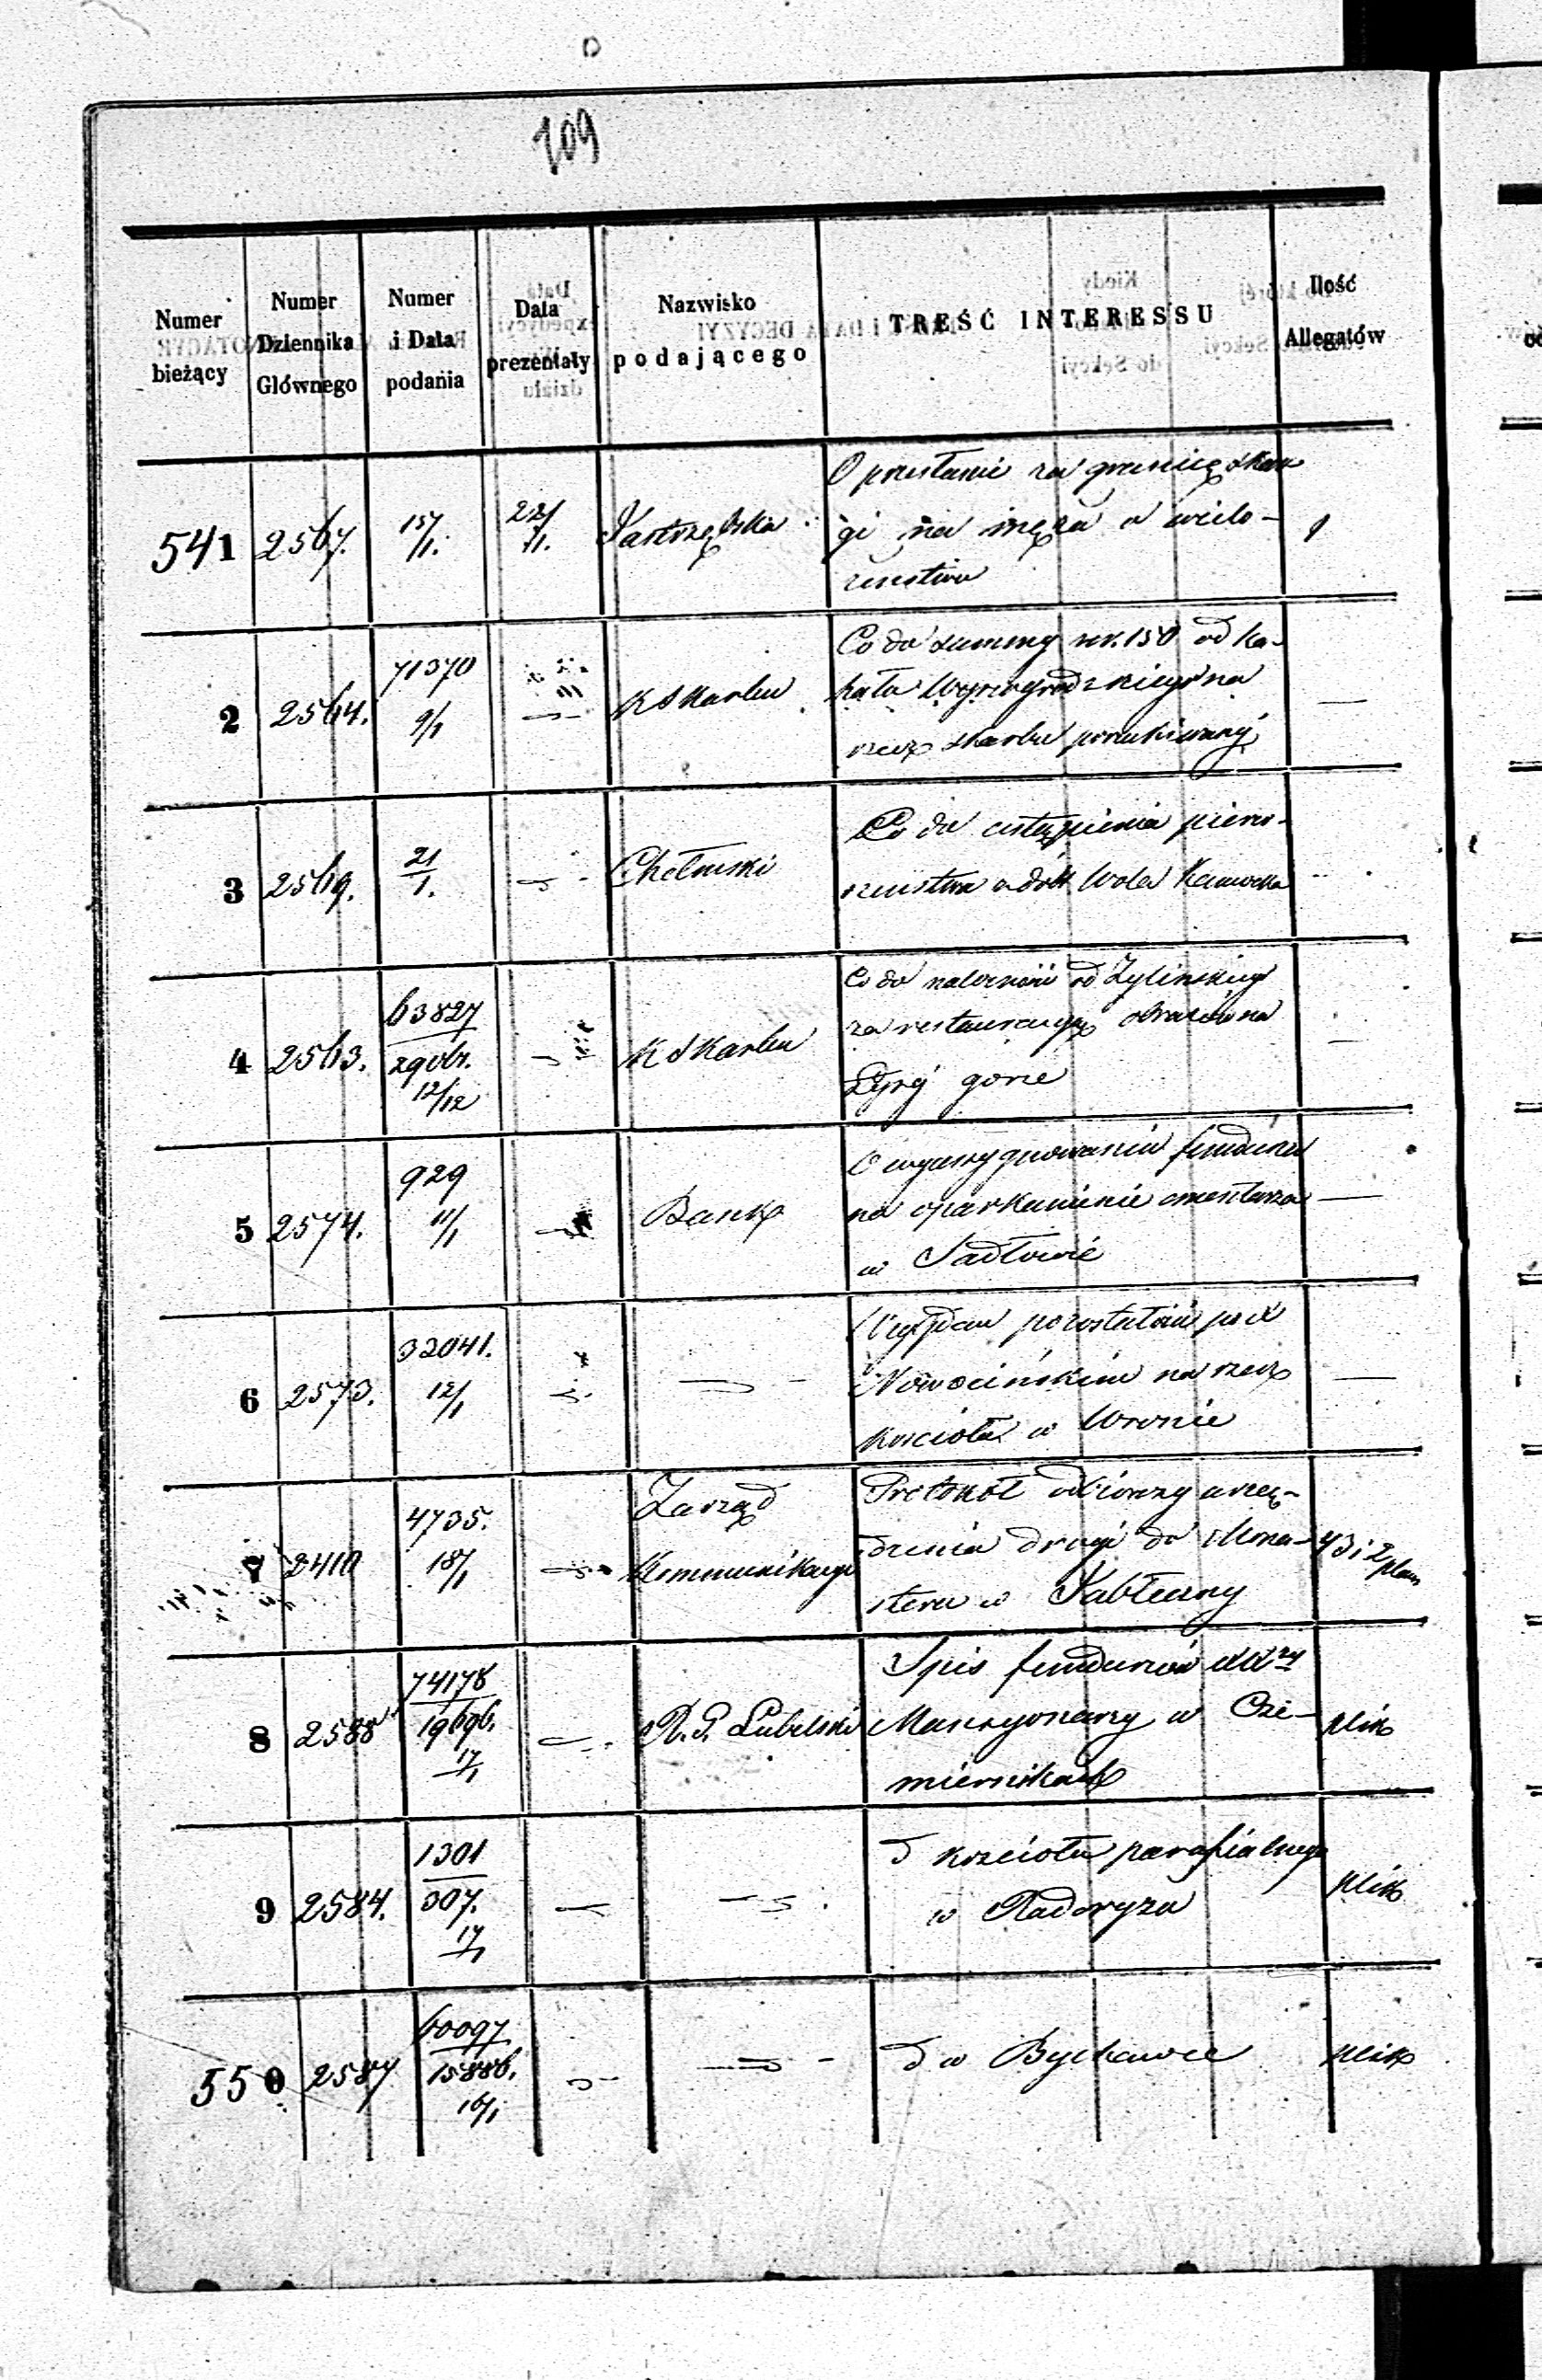 209
Numer bieżący
Numer Dziennika Głównego
Numer i Data podania
Data prezentaty
Nazwisko podającego
TREŚĆ INTERESSU
Ilość Allegatów
541 2567. 15/1. 22/1. Jastrzębska
O przesłanie za granicę skar
gi na męża o wielo-
żeństwo
1
2 2564. 71370 9/1 K Skarbu
Co do summy rsr. 150 od Ka-
hału Wyszogrodzkiego na
rzecz skarbu poszukiwanéj
—
3 2569. 21/1. Chełmski
Co do ustąpienia pierw-
szeństwa
Wola
4 2563. 63827 12/12 K Skarbu
Co do należności od Żylińskiego
za restauracyą obrazów na
Łyséj górze
—
5 2574. 929 11/1 Bank
O wyassygnowanie funduszu
na oparkanienie cmentarza
w Sadłowie
—
6 2573. 32041. 12/1
pozostałości po X
Nowocińskim na rzecz
kościoła w Wronie
—
7 2410 4735. 18/1 Zarząd
Kommunikacyi
Protokół odbiorczy urzą-
dzenia drogi do Mona-
steru w Jabłeczny
43 i 2 plany
8 2588 74178 19696. 17/1 R. G. Lubelski
Spis funduszów
Mansyonarzy w Cze-
miernikach
plik
9 2584. 1301 307. 17/1
D kościoła parafialnego
w Radoryżu
plik
550 2587 60097 15886. 16/1
D w Bychawce
plik